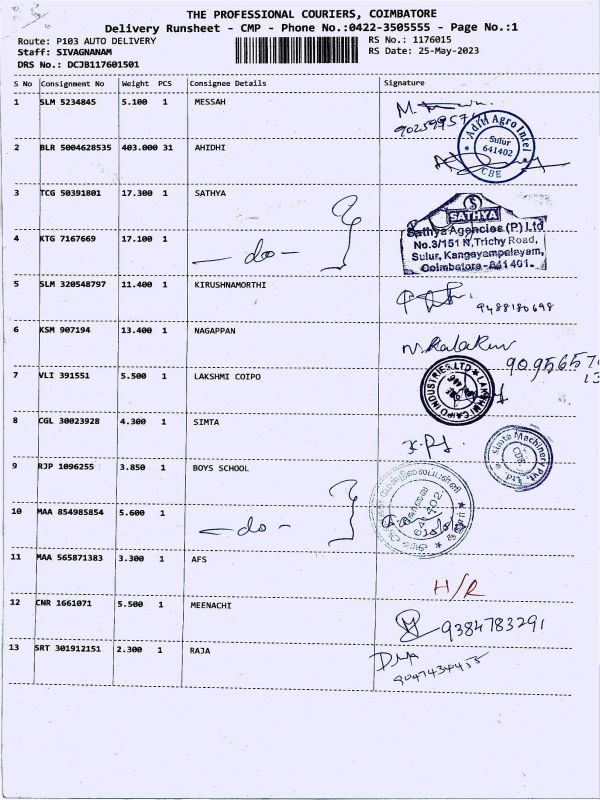 THE PROFESSIONAL COURIERS, COIMBATORE
Delivery Runsheet - CMP - Phone No.:0422-3505555 - Page No.:1
Route: P103 AUTO DELIVERY
Staff: SIVAGNANAM
DRS No.: DCJB117601501
RS No.: 1176015
RS Date: 25-May-2023
S No Consignment No Weight PCS Consignee Details Signature
1 SLM 5234845 5.100 1 MESSAH
2 BLR 5004628535 403.000 31 AHIDHI
Aditi Agro Intel
Sulur
641402
CBE
3 TCG 50391801 17.300 1 SATHYA
SATHYA
Sathya Agencies (P) Ltd
No.3/151 N,Trichy Road,
Sulur, Kangayampalayam,
Coimbatore-641401.
4 KTG 7167669 17.100 1 - do -
5 SLM 320548797 11.400 1 KIRUSHNAMORTHI
9488180698
6 KSM 907194 13.400 1 NAGAPPAN
909565
7 VLI 391551 5.500 1 LAKSHMI COIPO
LAKSHMI CAIPO INDUSTRIES LTD
8 CGL 30023928 4.300 1 SIMTA
Simta Machinery Pvt. Ltd
9 RJP 1096255 3.850 1 BOYS SCHOOL
10 MAA 854985854 5.600 1 - do -
11 MAA 565871383 3.300 1 AFS
H/R
12 CNR 1661071 5.500 1 MEENACHI
9384783291
13 SRT 301912151 2.300 1 RAJA